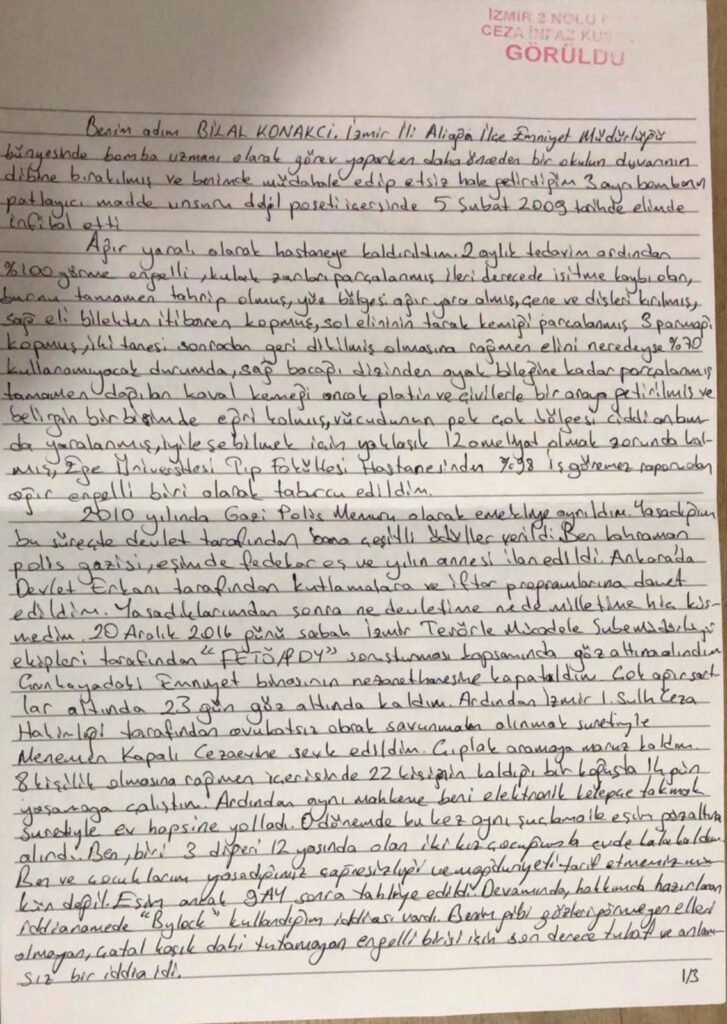 İZMİR 2 NOLU
CEZA İNFAZ KU
GÖRÜLDÜ
Benim adım BİLAL KONAKCI. İzmir İli Aliağa İlçe Emniyet Müdürlüğü
bünyesinde bomba uzmanı olarak görev yaparken daha önceden bir okulun duvarının
dibine bırakılmış ve benimde müdahale edip etsiz hale getirdiğim 3 ayrı bombanın
patlayıcı madde unsuru değil poseti icersinde 5 Şubat 2009 tarihde elimde
infilal etti
Ağır yaralı olarak hastaneye kaldırıldım. 2 aylık tedavim ardından
%100 görme engelli, kulak zarları parçalanmış ileri derecede isitme kaybı olan,
burnu tamamen tahrip olmuş, yüz bölgesi ağır yara almış, çene ve dişleri kırılmış,
sağ eli bilekten itibaren kopmuş, sol elininin tarak kemiği parcalanmış 3 parmağı
kopmuş, iki tanesi sonradan geri dikilmiş olmasına rağmen elini neredeyse %70
kullanamıyacak durumda, sağ bacağı dizinden ayak bileğine kadar parçalanmış
tamamen dağılan kaval kemeği ancak platin ve çivilerle bir araya getirilmiş ve
belirgin bir biçimde eğri kalmış, vücudunun pek çok bölgesi ciddi anlam-
da yaralanmış, iyileşebilmek icin yaklaşık 12 ameliyat olmak zorunda kal-
mış, Ege Üniversitesi Tıp Fakültesi Hastanesinden %98 iş göremez raporu olan
ağır engelli biri olarak taburcu edildim.
2010 yılında Gazi Polis Memuru olarak emekliye ayrıldım. Yasadığım
bu süreçte devlet tarafından bana çeşitli ödüller verildi. Ben kahraman
polis gazisi, eşimde fedakar eş ve yılın annesi ilan edildi. Ankarada
Devlet Erkanı tarafından kutlamalara ve iftar programlarına davet
edildim. Yasadıklarımdan sonra ne devletime nede milletime hic küs-
medim. 20 Aralık 2016 günü sabah İzmir Terörle Mücadele Şube Müdürlüğü
ekipleri tarafından "FETÖ/PDY" soruşturması kapsamında göz altına alındım
Emniyet binasının nezarethanesine kapatıldım. Çok ağır şart-
lar altında 23 gün göz altında kaldım. Ardından İzmir 1. Sulh Ceza
Hakimliği tarafından avukatsız olarak savunmam alınmak suretiyle
Menemen Kapalı Cezaevine sevk edildim. Çıplak aramaya maruz kaldım.
8 kişilik olmasına rağmen icerisinde 22 kişinin kaldığı bir koğuşta 14 gün
yaşamaya çalıştım. Ardından aynı mahkeme beni elektronik kelepçe takmak
suretiyle ev hapsine yolladı. O dönemde bu kez aynı suçlama ile eşim gözaltına
alındı. Ben, biri 3 diğeri 12 yasında olan iki kız çocuğumla evde kalakaldım
Ben ve çocuklarım yaşadığımız çaresizliği ve mağduriyeti tarif etmemiz müm-
kün değil. Eşim ancak 9 AY sonra tahliye edildi. Devamında, hakkımda hazırlanan
iddianamede "Bylock" kullandığım iddiası vardı. Benim gibi gözleri görmeyen elleri
olmayan, çatal kaşık dahi tutamayan engelli birisi için son derece tuhaf ve anlam-
sız bir iddia idi.
1/3